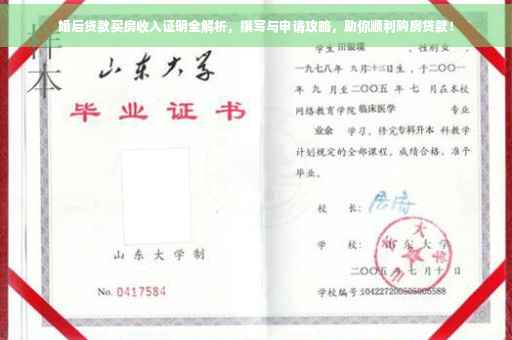 婚后贷款买房收入证明全解析，撰写与申请攻略，助你顺利购房贷款！
样本
山东大学
毕业证书
山东大学制
No. 0417584
学生 田银瑞 ，性别女，
一九七八年 九月十三日生，于二〇〇一
年 九 月至二〇〇五 年 七 月在本校
网络教育学院 临床医学 专业
业余 学习，修完专科升本 科教学
计划规定的全部课程，成绩合格，准予
毕业。
校 长：
学 校： 山东大学
二〇〇五 年 七 月 十 日
学校编号:104227200505005588